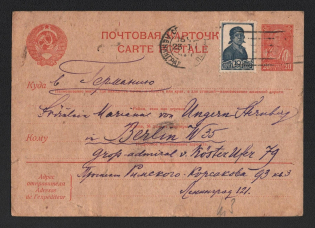 ПОЧТОВАЯ КАРТОЧКА
CARTE POSTALE
Куда в Германию
Fräulein Marianne von Ungern Sternberg
Кому in Berlin W 35
Адрес
отправителя
Großadmiral v. Köster Ufer 79
Проспект Римского-Корсакова 93 кв 3
Ленинград 121.